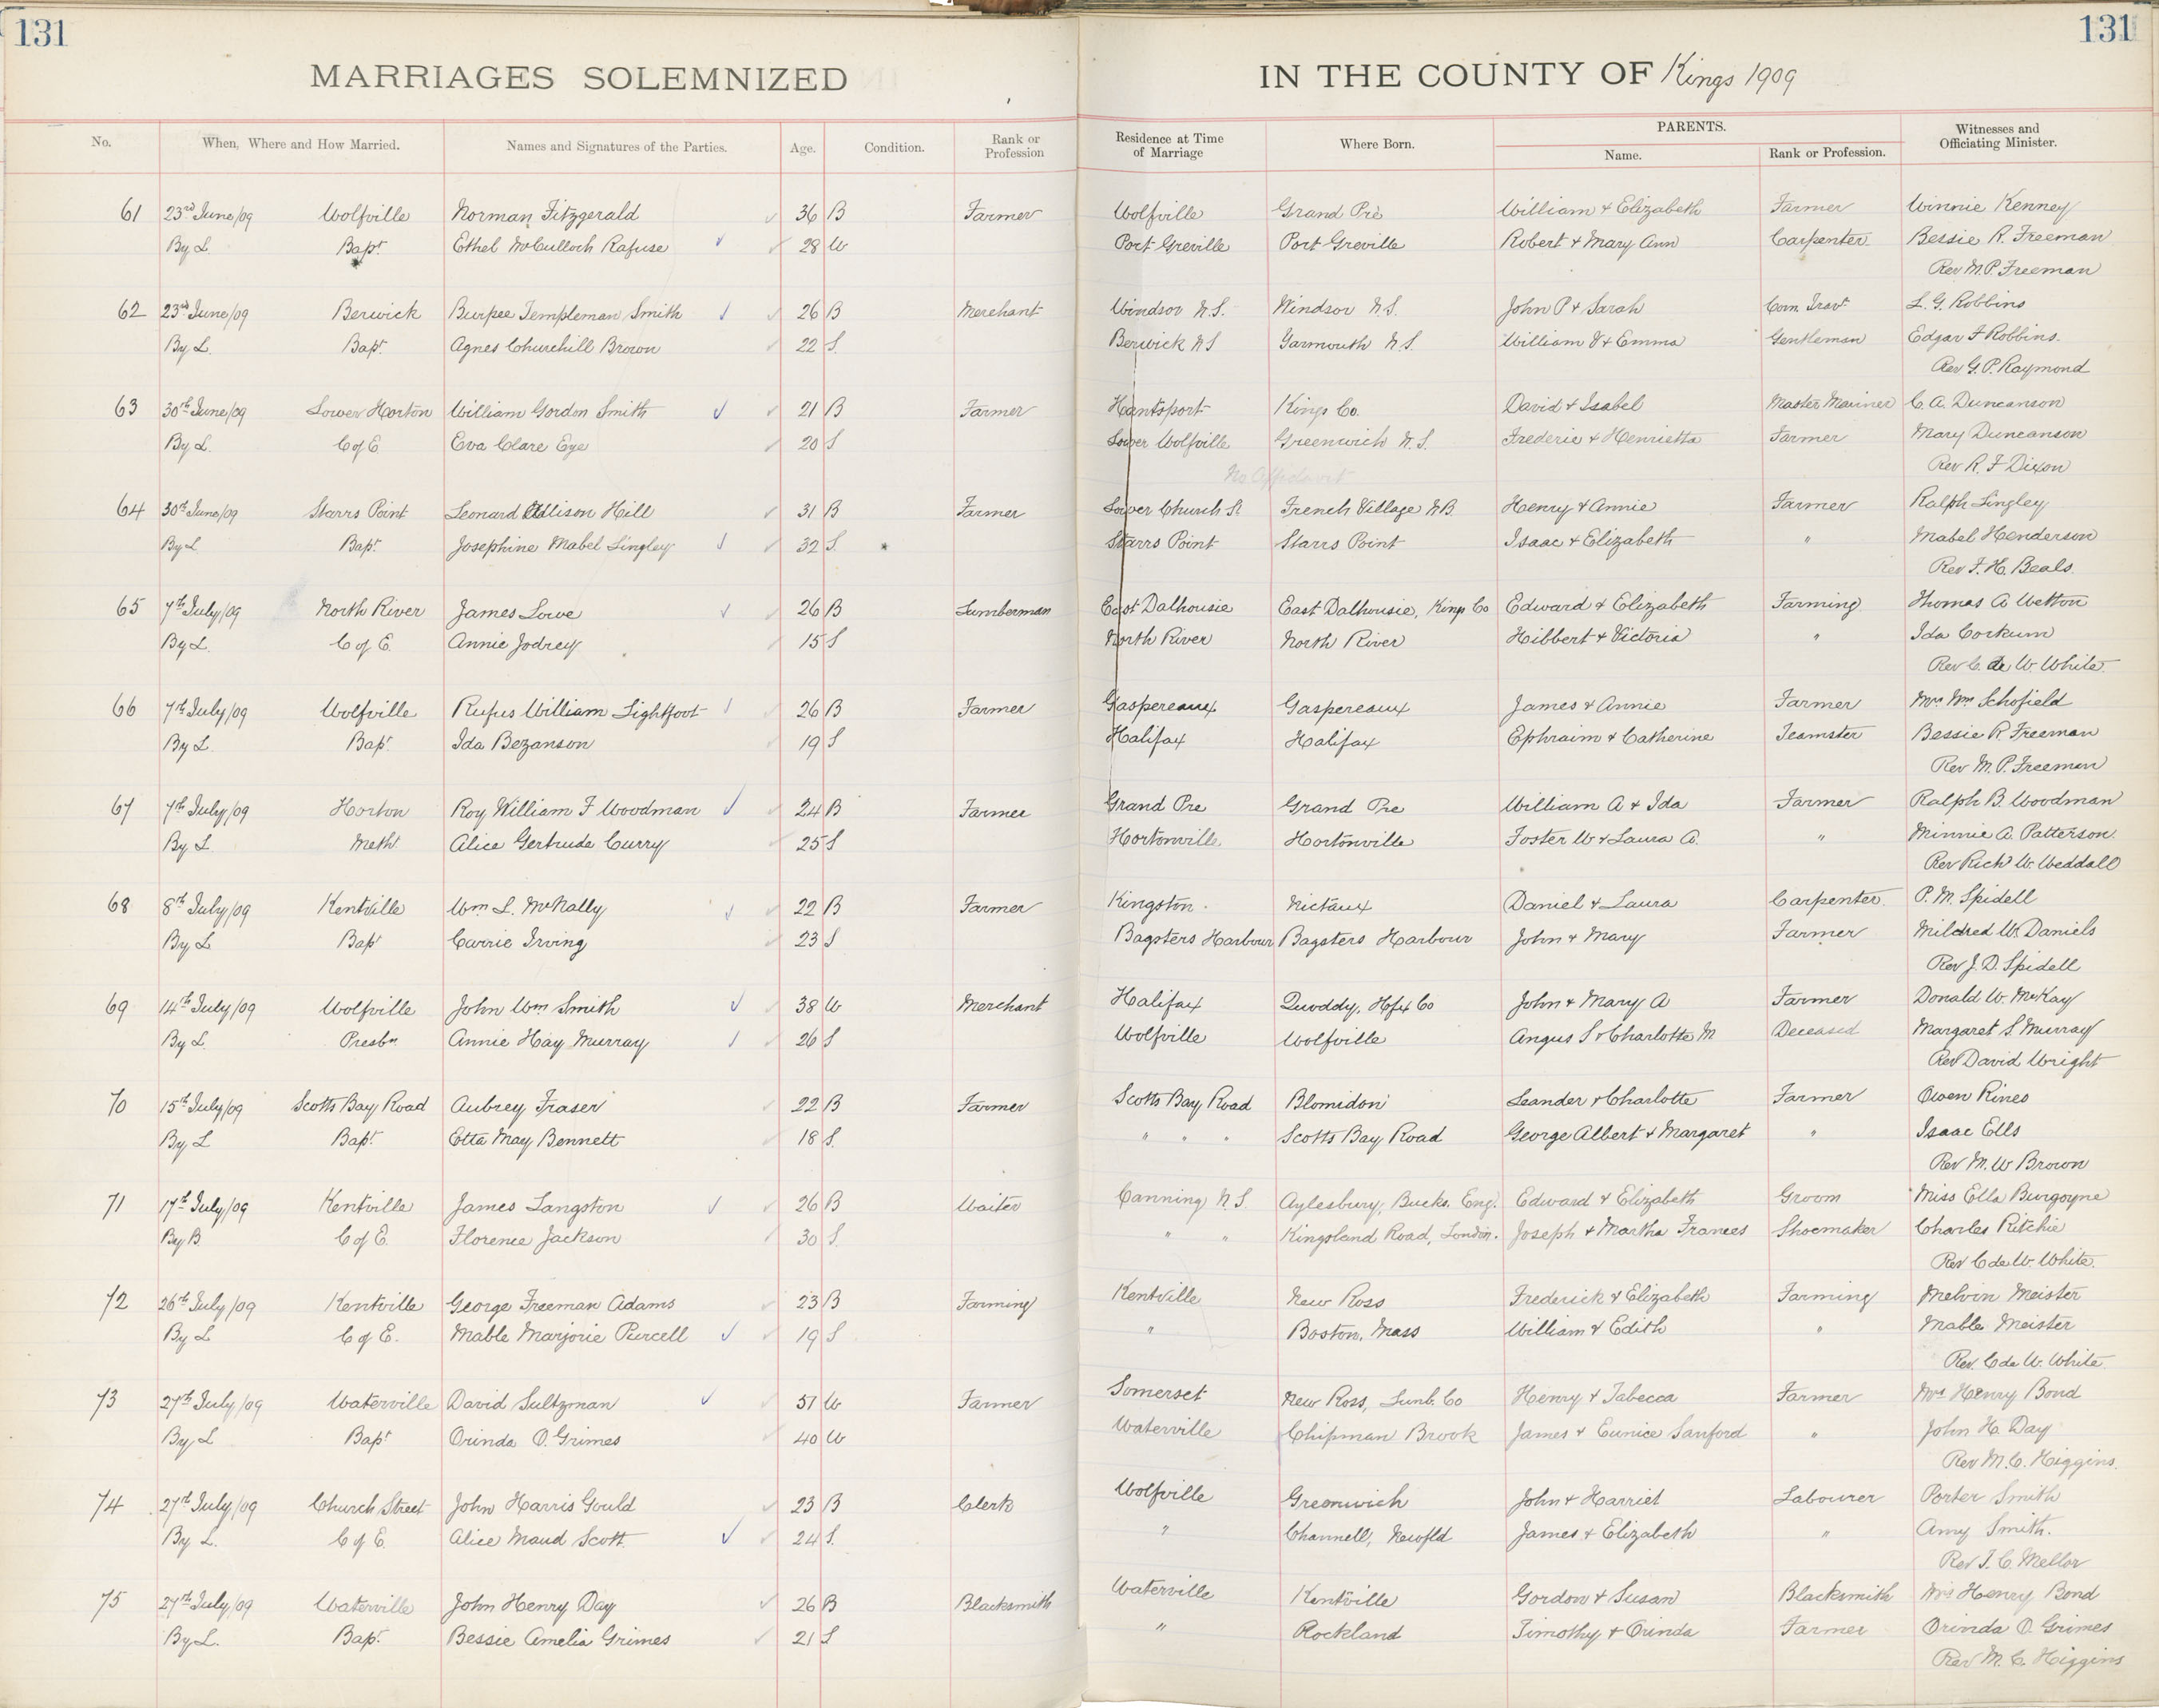 131 131
MARRIAGES SOLEMNIZED IN THE COUNTY OF Kings 1909
No. When, Where and How Married. Names and Signatures of the Parties. Age. Condition. Rank or Profession Residence at Time of Marriage Where Born. PARENTS. Name. Rank or Profession. Witnesses and Officiating Minister.
61 23rd June/09 Wolfville Norman Fitzgerald 36 B Farmer Wolfville Grand Pré William & Elizabeth Farmer Winnie Kenney
By L Bapt. Ethel McCulloch Rafuse 28 W Port Greville Port Greville Robert & Mary Ann Carpenter Bessie R. Freeman
Rev M.P. Freeman
62 23rd June/09 Berwick Burpee Templeman Smith 26 B Merchant Windsor N.S. Windsor N.S. John P & Sarah Com. Travr L. G. Robbins
By L. Bapt. Agnes Churchill Brown 22 S. Berwick NS Yarmouth N.S. William & Emma Gentleman Edgar F Robbins.
Rev G. P. Raymond
63 30th June/09 Lower Horton William Gordon Smith 21 B Farmer Hantsport Kings Co. David & Isabel Master Mariner C. A. Duncanson
By L. C of E. Eva Clare Eye 20 S Lower Wolfville Greenwich N.S. Frederic & Henrietta Farmer Mary Duncanson
No Affidavit Rev R. F Dixon
64 30th June/09 Starrs Point Leonard Allison Hill 31 B Farmer Lower Church St. French Village NB. Henry & Annie Farmer Ralph Lingley
By L Bapt. Josephine Mabel Lingley 32 S. Starrs Point Starrs Point Isaac & Elizabeth " Mabel Henderson
Rev F. H. Beals.
65 7th July/09 North River James Lowe 26 B Lumberman East Dalhousie East Dalhousie, Kings Co Edward & Elizabeth Farming Thomas A Wetton
By L. C of E. Annie Jodrey 15 S North River North River Hibbert & Victoria " Ida Corkum
Rev C. de W. White
66 7th July/09 Wolfville Rufus William Lightfoot 26 B Farmer Gaspereaux Gaspereaux James & Annie Farmer Mrs Wm Schofield
By L. Bapt. Ida Bezanson 19 S Halifax Halifax Ephraim & Catherine Teamster Bessie R Freeman
Rev M. P. Freeman
67 7th July/09 Horton Roy William F Woodman 24 B Farmer Grand Pre Grand Pre William A & Ida Farmer Ralph B. Woodman
By L. Meth. Alice Gertrude Curry 25 S Hortonville Hortonville Foster W & Laura A. " Minnie A. Patterson
Rev Richd W. Weddall
68 8th July/09 Kentville Wm L. McNally 22 B Farmer Kingston Nictaux Daniel & Laura Carpenter P. M. Spidell
By L Bapt Carrie Irving 23 S Bagsters Harbour Bagsters Harbour John & Mary Farmer Mildred W. Daniels
Rev J. D. Spidell
69 14th July/09 Wolfville John Wm Smith 38 W Merchant Halifax Quoddy, Hfx Co John & Mary A Farmer Donald W. McKay
By L. Presbn Annie Hay Murray 26 S Wolfville Wolfville Angus S & Charlotte M Deceased Margaret S. Murray
Rev David Wright
70 15th July/09 Scotts Bay Road Aubrey Fraser 22 B Farmer Scotts Bay Road Blomidon Leander & Charlotte Farmer Owen Rines
By L Bapt. Etta May Bennett 18 S. " " " Scotts Bay Road George Albert & Margaret " Isaac Ells
Rev M. W Brown
71 17th July/09 Kentville James Langston 26 B Waiter Canning N.S. Aylesbury, Bucks. Eng. Edward & Elizabeth Groom Miss Ella Burgoyne
By B C of E. Florence Jackson 30 S. " " Kingsland Road, London. Joseph & Martha Frances Shoemaker Charles Ritchie
Rev C de W. White.
72 26th July/09 Kentville George Freeman Adams 23 B Farming Kentville New Ross Frederick & Elizabeth Farming Melvin Meister
By L C of E. Mable Marjorie Purcell 19 S " Boston, Mass William & Edith " Mable Meister
Rev. C de W. White.
73 27th July/09 Waterville David Sultzman 57 W Farmer Somerset New Ross, Lunb. Co Henry & Tabecca Farmer Mrs Henry Bond
By L Bapt Orinda O. Grimes 40 W Waterville Chipman Brook James & Eunice Sanford " John H. Day
Rev M. C. Higgins.
74 27th July/09 Church Street John Harris Gould 23 B Clerk Wolfville Greenwich John & Harriet Labourer Porter Smith
By L. C of E. Alice Maud Scott. 24 S. " Channell, Newfld James & Elizabeth " Amy Smith.
Rev T. C. Mellor
75 27th July/09 Waterville John Henry Day 26 B Blacksmith Waterville Kentville Gordon & Susan Blacksmith Mrs Henry Bond
By L. Bapt. Bessie Amelia Grimes 21 S " Rockland Timothy & Orinda Farmer Orinda O. Grimes
Rev M. C. Higgins